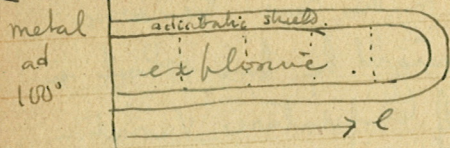 metal
ad
100°
adiabatic shield.
explosive
l